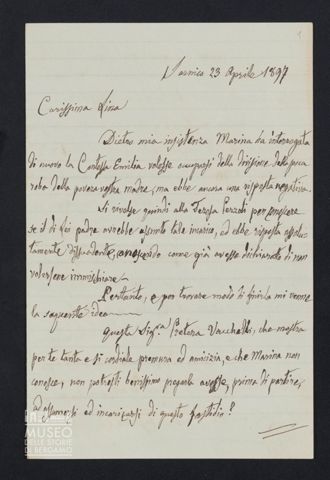 1
Sarnico 23 Aprile 1897
Carissima Lisa
Dietro mia insistenza Marina ha interrogata
di nuovo la Contessa Emilia volesse occuparsi della divisione della poca
roba della povera vostra madre, ma ebbe ancora una risposta negativa.
Si rivolse quindi alla Teresa per conoscere
se il di lei padre avrebbe assunto tale incarico, ed ebbe risposta assolu-
tamente dissuadente, conoscendo come già avesse dichiarato di non
volersene immischiare.
Pertanto, e per trovare modo di finirla mi venne
la seguente idea
Questa Sig.ra Pretora Vacchelli, che mostra
per te tanta e sì cordiale premura ed amicizia, e che Marina non
conosce, non potresti benissimo pregarla avesse, prima di partire,
ad assumersi ed incaricarsi di questo fastidio?
MUSEO
DELLE STORIE
DI BERGAMO